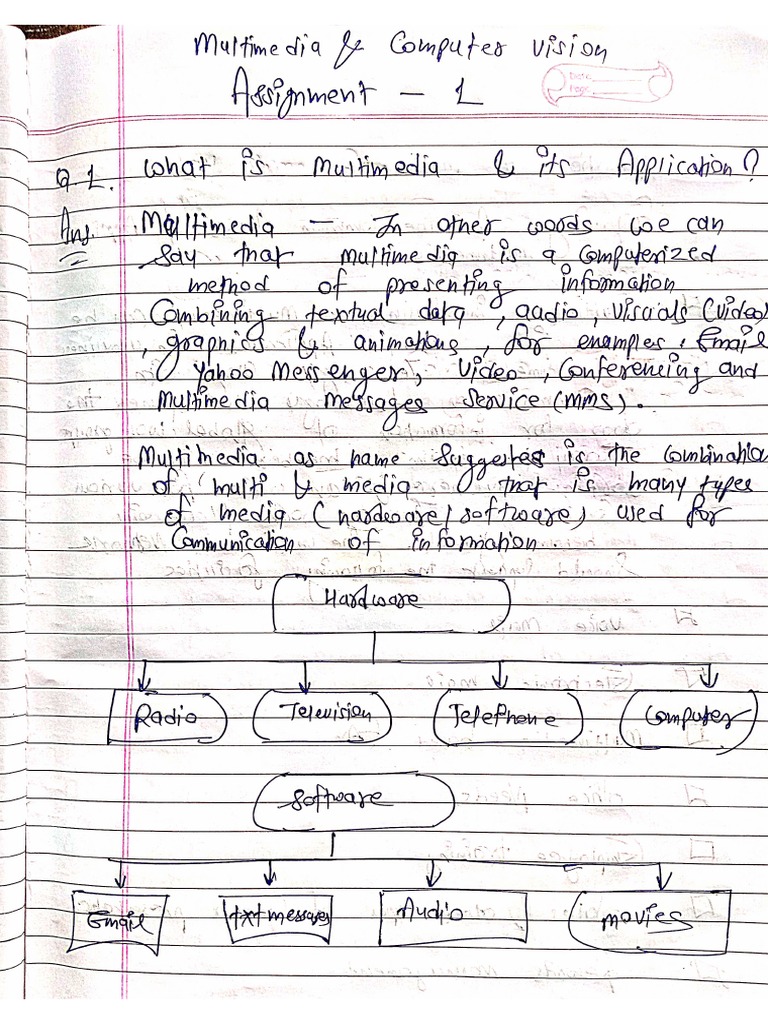 Multimedia & Computer vision
Assignment - 1
Date
Page
Q.1. What is Multimedia & its Application?
Ans. Multimedia - In other words we can
say that multimedia is a computerized
method of presenting information
Combining textual data, audio, visuals (video)
, graphics & animations, for examples, Email
Yahoo Messenger, Video, Conferencing and
Multimedia messages service (mms).
Multimedia as name suggestes is the combination
of 'multi & media that is many types
of media (hardware/software) used for
Communication of information.
Hardware
Radio Television Telephone Computer
Software
Email txt messages Audio movies